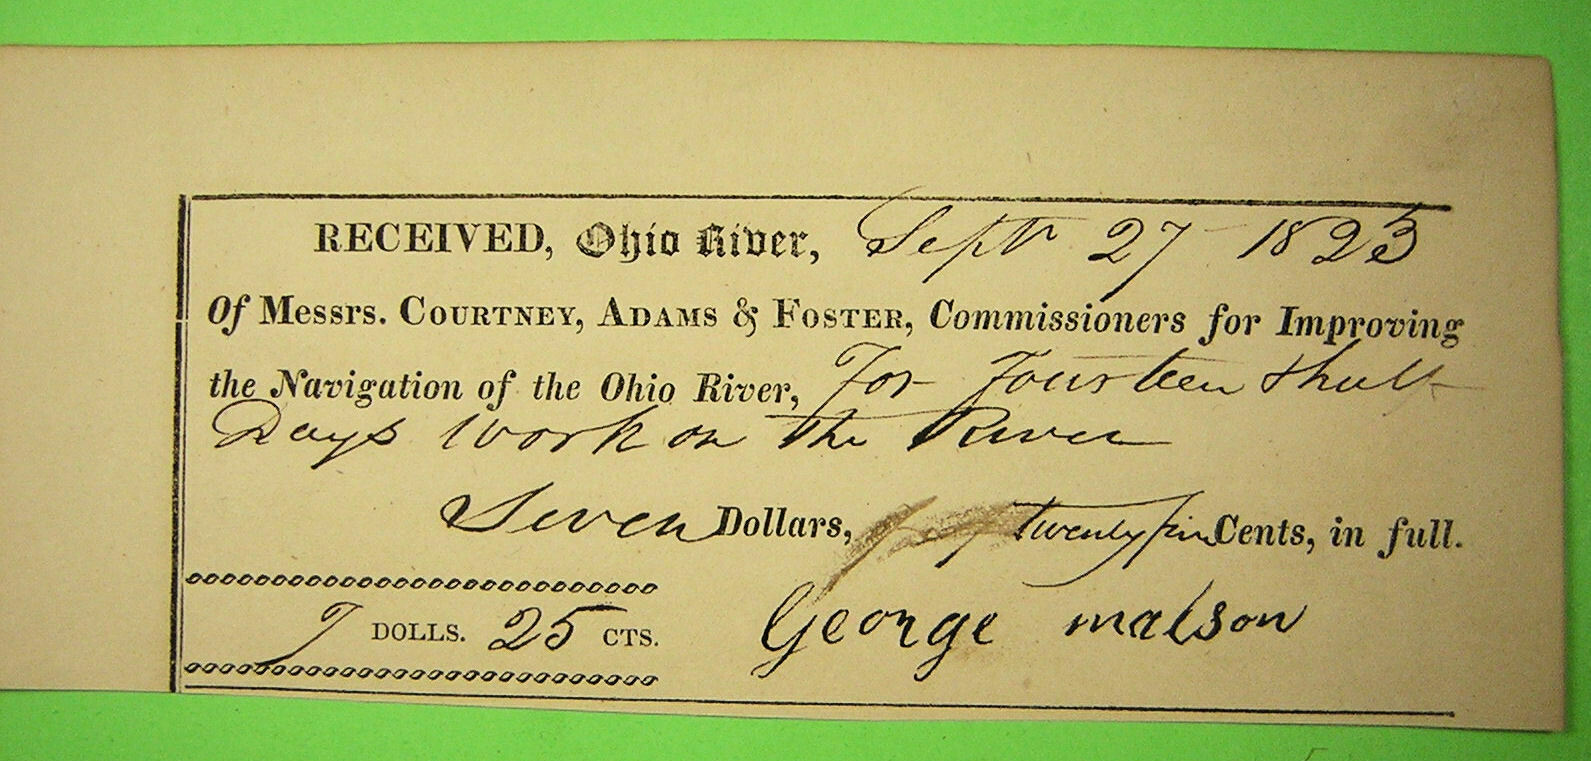 RECEIVED, Ohio River, Sept 27 1823
Of Messrs. COURTNEY, ADAMS & FOSTER, Commissioners for Improving
the Navigation of the Ohio River, For Fourteen & half
Days Work on the River
Seven Dollars, twenty five Cents, in full.
7 DOLLS. 25 CTS. George malson